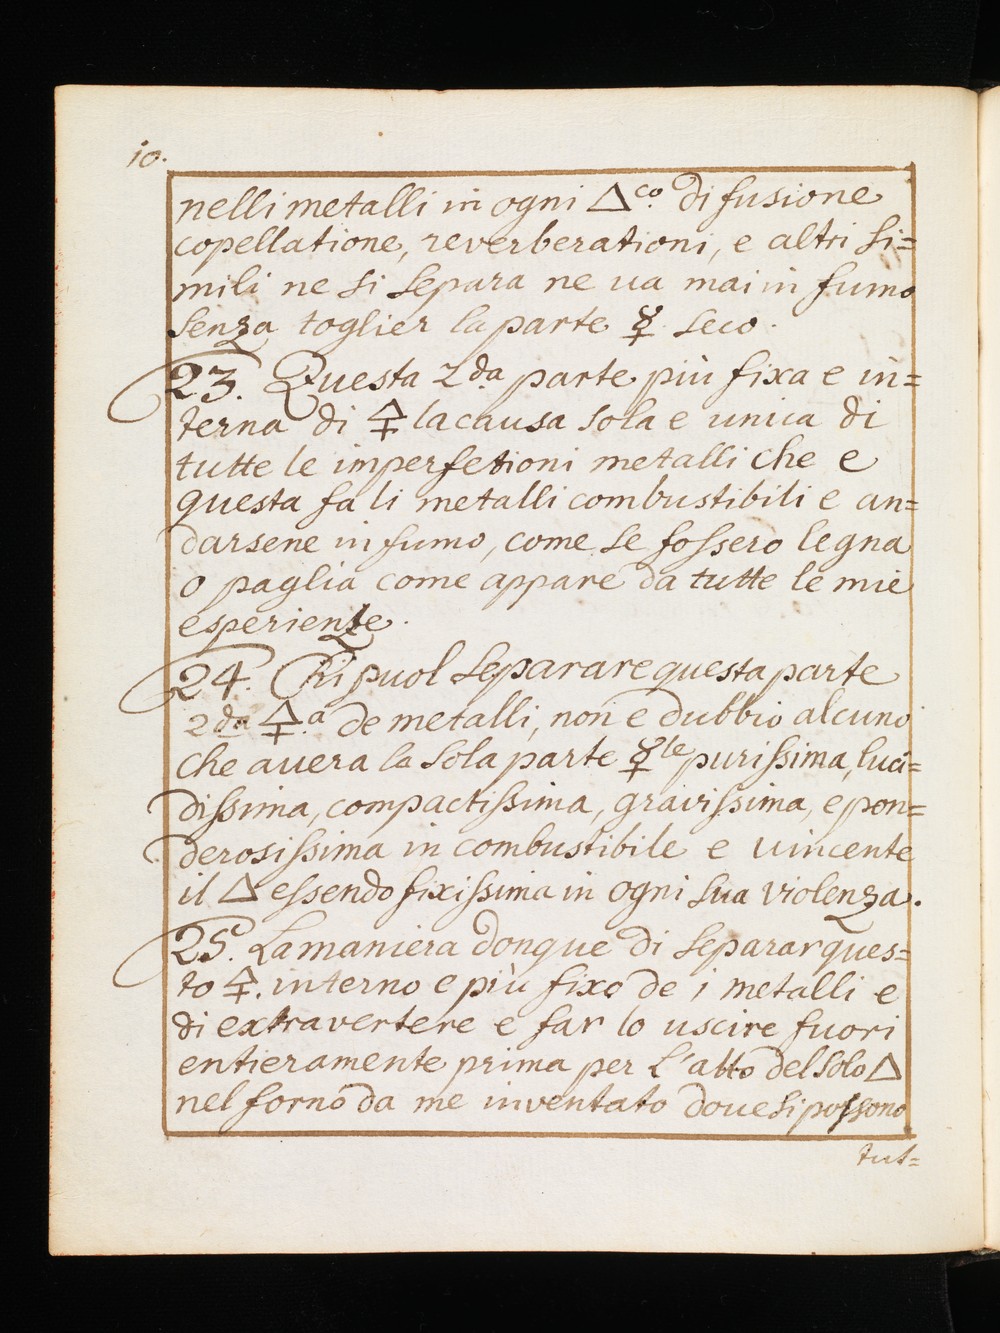 10.
nelli metalli in ogni 🜂co. di fusione
copellatione, reverberationi, e altri si=
mili ne si separa ne va mai in fumo
senza toglier la parte ☿ seco.
23. Questa 2da parte più fixa e in=
terna di 🜍 la causa sola e unica di
tutte le imperfetioni metalli che e
questa fa li metalli combustibili e an=
darsene in fumo, come se fossero legna
o paglia come appare da tutte le mie
esperienze.
24. Si puol separare questa parte
2da 🜍.a de metalli, non e dubbio alcuno
che avera la sola parte ☿le purissima, luci=
dissima, compactissima, gravissima, e pon=
derosissima in combustibile e vincente
il 🜂 essendo fixissima in ogni sua violenza.
25. La maniera donque di separar ques=
to 🜍. interno e più fixo de i metalli e
di extravertere e far lo uscire fuori
entieramente prima per l'atto del solo 🜂
nel forno da me inventato dove si possono
tut=